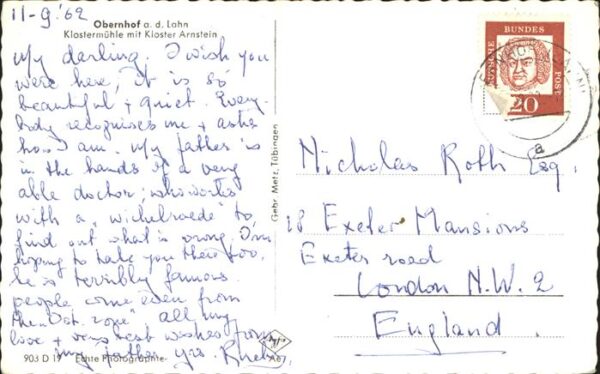 11-9.'62
Obernhof a. d. Lahn
Klostermühle mit Kloster Arnstein
My darling. I wish you
were here, it is so
beautiful + quiet. Every-
body recognises me + asks
how I am. My father is
in the hands of a very
able doctor, who works
with a "wichelroede" to
find out what is wrong. I'm
hoping to take you there too,
he is terribly famous
people come even from
the "Ost. zone" all my
love + very best wishes from
my father yrs.
903 D 19 Echte Photographie
Agfa
Gebr. Metz, Tübingen
DEUTSCHE BUNDES POST
20
a
Nicholas Roth Esq.
18 Exeter Mansions
Exeter road
London N.W. 2
England.